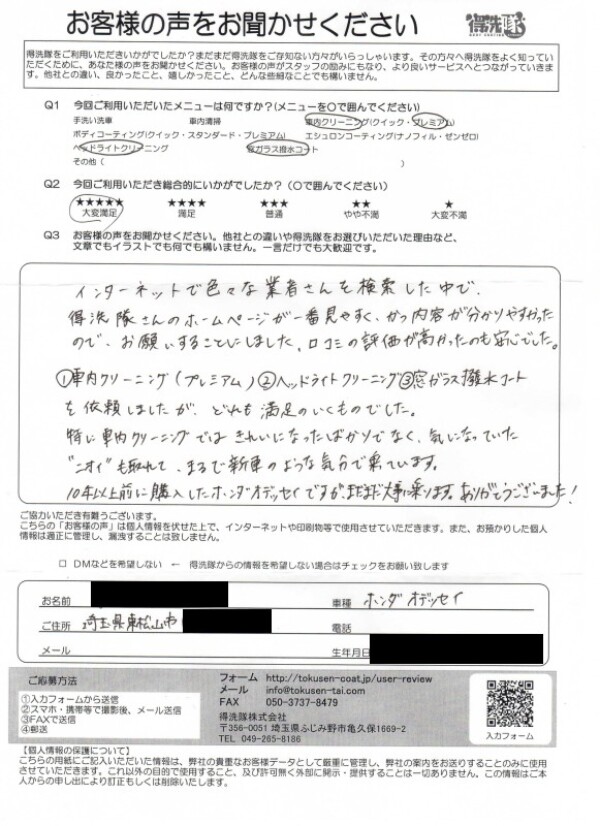 お客様の声をお聞かせください
得洗隊
得洗隊をご利用いただきいかがでしたか?まだまだ得洗隊をご存知ない方々がいらっしゃいます。その方々へ得洗隊をよく知っていただくために、あなた様の声をお聞かせください。お客様の声がスタッフの励みにもなり、より良いサービスへとつながっていきます。他社との違い、良かったこと、嬉しかったこと、どんな些細なことでも構いません。
Q1 今回ご利用いただいたメニューは何ですか?(メニューを〇で囲んでください)
手洗い洗車 車内清掃 車内クリーニング(クイック・プレミアム)
ボディコーティング(クイック・スタンダード・プレミアム) エシュロンコーティング(ナノフィル・ゼンゼロ)
ヘッドライトクリーニング 窓ガラス撥水コート
その他( )
Q2 今回ご利用いただき総合的にいかがでしたか?(〇で囲んでください)
★★★★★ ★★★★ ★★★ ★★ ★
大変満足 満足 普通 やや不満 大変不満
Q3 お客様の声をお聞かせください。他社との違いや得洗隊をお選びいただいた理由など、
文章でもイラストでも何でも構いません。一言だけでも大歓迎です。
インターネットで色々な業者さんを検索した中で、
得洗隊さんのホームページが一番見やすく、かつ内容が分かりやすかった
ので、お願いすることにしました。口コミの評価が高かったのも安心でした。
①車内クリーニング(プレミアム)②ヘッドライトクリーニング③窓ガラス撥水コート
を依頼しましたが、どれも満足のいくものでした。
特に車内クリーニングではきれいになったばかりでなく、気になっていた
"ニオイ"も取れて、まるで新車のような気分で乗ています。
10年以上前に購入したホンダオデッセイですがまだまだ大事に乗ります。ありがとうございました!
ご協力いただき有難うございます。
こちらの「お客様の声」は個人情報を伏せた上で、インターネットや印刷物等で使用させていただきます。また、お預かりした個人情報は適正に管理し、漏洩することは致しません。
□ DMなどを希望しない ← 得洗隊からの情報を希望しない場合はチェックをお願い致します
お名前 車種 ホンダ オデッセイ
ご住所 埼玉県東松山市 電話
メール 生年月日
ご応募方法
①入力フォームから送信
②スマホ・携帯等で撮影後、メール送信
③FAXで送信
④郵送
フォーム http://tokusen-coat.jp/user-review
メール info@tokusen-tai.com
FAX 050-3737-8479
得洗隊株式会社
〒356-0051 埼玉県ふじみ野市亀久保1669-2
TEL 049-265-8186
入力フォーム
【個人情報の保護について】
こちらの用紙にご記入いただいた情報は、弊社の貴重なお客様データとして厳重に管理し、弊社の案内をお送りすることのみに使用させていただきます。これ以外の目的で使用すること、及び許可無く外部に開示・提供することは一切ありません。この情報はご本人からの申し出により訂正もしくは削除いたします。